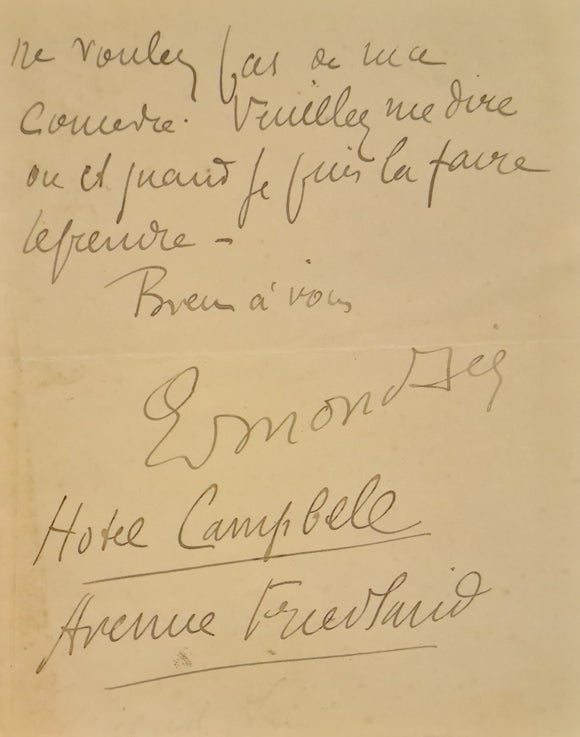 ne voulez pas de ma
Comédie. Veuillez me dire
où et quand je puis la faire
reprendre -
Bien à vous
Edmond Sée
Hotel Campbell
Avenue Friedland